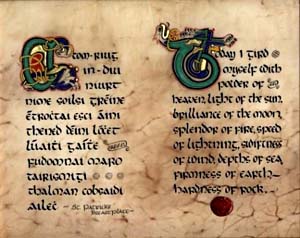 Atom-riug
in-diu
niurt
nime soilsi gréine
étroctai esci áini
thened déini lócet
luaiti gaíte
fudomnai maro
tairismigi
thalman cobsaidi
ailec — St Patricks
Breastplate —
Today I gird
myself with
power of
heaven, light of the sun,
brilliance of the moon,
splendor of fire, speed
of lightning, swiftness
of wind, depths of sea
firmness of earth —
hardness of rock